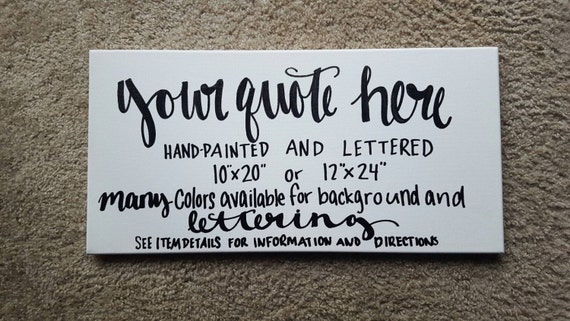 your quote here
HAND-PAINTED AND LETTERED
10"x20" or 12"x24"
many Colors available for background and
lettering
SEE ITEM DETAILS FOR INFORMATION AND DIRECTIONS